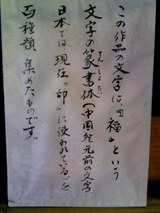 この作品の文字は、「福」という
文字の篆書体(中国紀元前の文字
日本では現在「印」に使われている)を
百種類集めたものです。